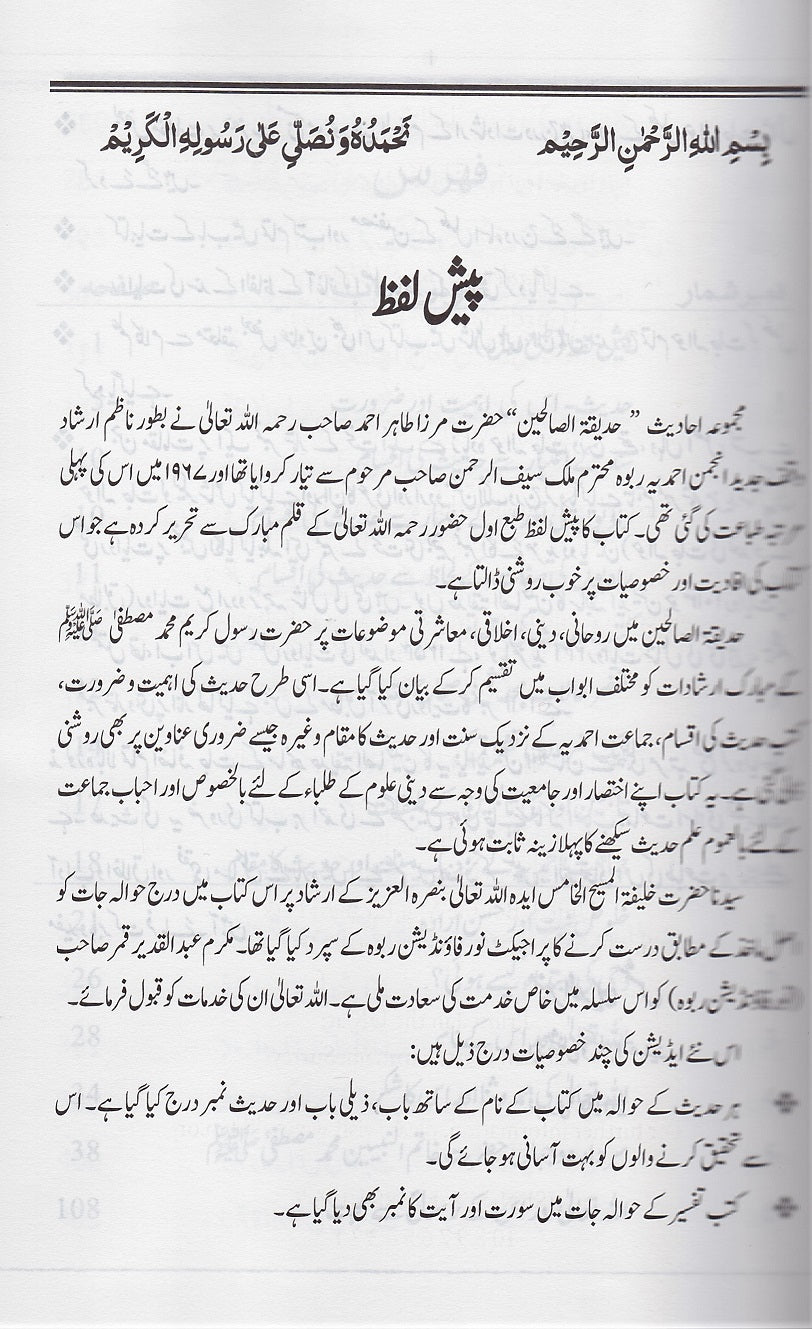 بِسْمِ اللہِ الرَّحْمٰنِ الرَّحِیْمِ نَحْمَدُہٗ وَنُصَلِّیْ عَلٰی رَسُوْلِہِ الْکَرِیْمْ
پیش لفظ
مجموعہ احادیث ”حدیقۃ الصالحین“ حضرت مرزا طاہر احمد صاحب رحمہ اللہ تعالیٰ نے بطور ناظم ارشاد
وقف جدید انجمن احمدیہ ربوہ محترم ملک سیف الرحمن صاحب مرحوم سے تیار کروایا تھا اور ۱۹۶۷ میں اس کی پہلی
مرتبہ طباعت کی گئی تھی۔ کتاب کا پیش لفظ طبع اول حضور رحمہ اللہ تعالیٰ کے قلم مبارک سے تحریر کردہ ہے جو اس
کتاب کی افادیت اور خصوصیات پر خوب روشنی ڈالتا ہے۔
حدیقۃ الصالحین میں روحانی، دینی، اخلاقی، معاشرتی موضوعات پر حضرت رسول کریم محمد مصطفیٰ ﷺ
کے مبارک ارشادات کو مختلف ابواب میں تقسیم کر کے بیان کیا گیا ہے۔ اسی طرح حدیث کی اہمیت و ضرورت،
کتب حدیث کی اقسام، جماعت احمدیہ کے نزدیک سنت اور حدیث کا مقام وغیرہ جیسے ضروری عناوین پر بھی روشنی
ڈالی گئی ہے۔ یہ کتاب اپنے اختصار اور جامعیت کی وجہ سے دینی علوم کے طلباء کے لئے بالخصوص اور احباب جماعت
کے لئے بالعموم علم حدیث سیکھنے کا پہلا زینہ ثابت ہوئی ہے۔
سیدنا حضرت خلیفۃ المسیح الخامس ایدہ اللہ تعالیٰ بنصرہ العزیز کے ارشاد پر اس کتاب میں درج حوالہ جات کو
اصل ماخذ کے مطابق درست کرنے کا پراجیکٹ نور فاؤنڈیشن ربوہ کے سپرد کیا گیا تھا۔ مکرم عبد القدیر قمر صاحب
(نور فاؤنڈیشن ربوہ) کو اس سلسلہ میں خاص خدمت کی سعادت ملی ہے۔ اللہ تعالیٰ ان کی خدمات کو قبول فرمائے۔
اس نئے ایڈیشن کی چند خصوصیات درج ذیل ہیں:
❖ ہر حدیث کے حوالہ میں کتاب کے نام کے ساتھ باب، ذیلی باب اور حدیث نمبر درج کیا گیا ہے۔ اس
سے تحقیق کرنے والوں کو بہت آسانی ہو جائے گی۔
❖ کتب تفسیر کے حوالہ جات میں سورت اور آیت کا نمبر بھی دیا گیا ہے۔